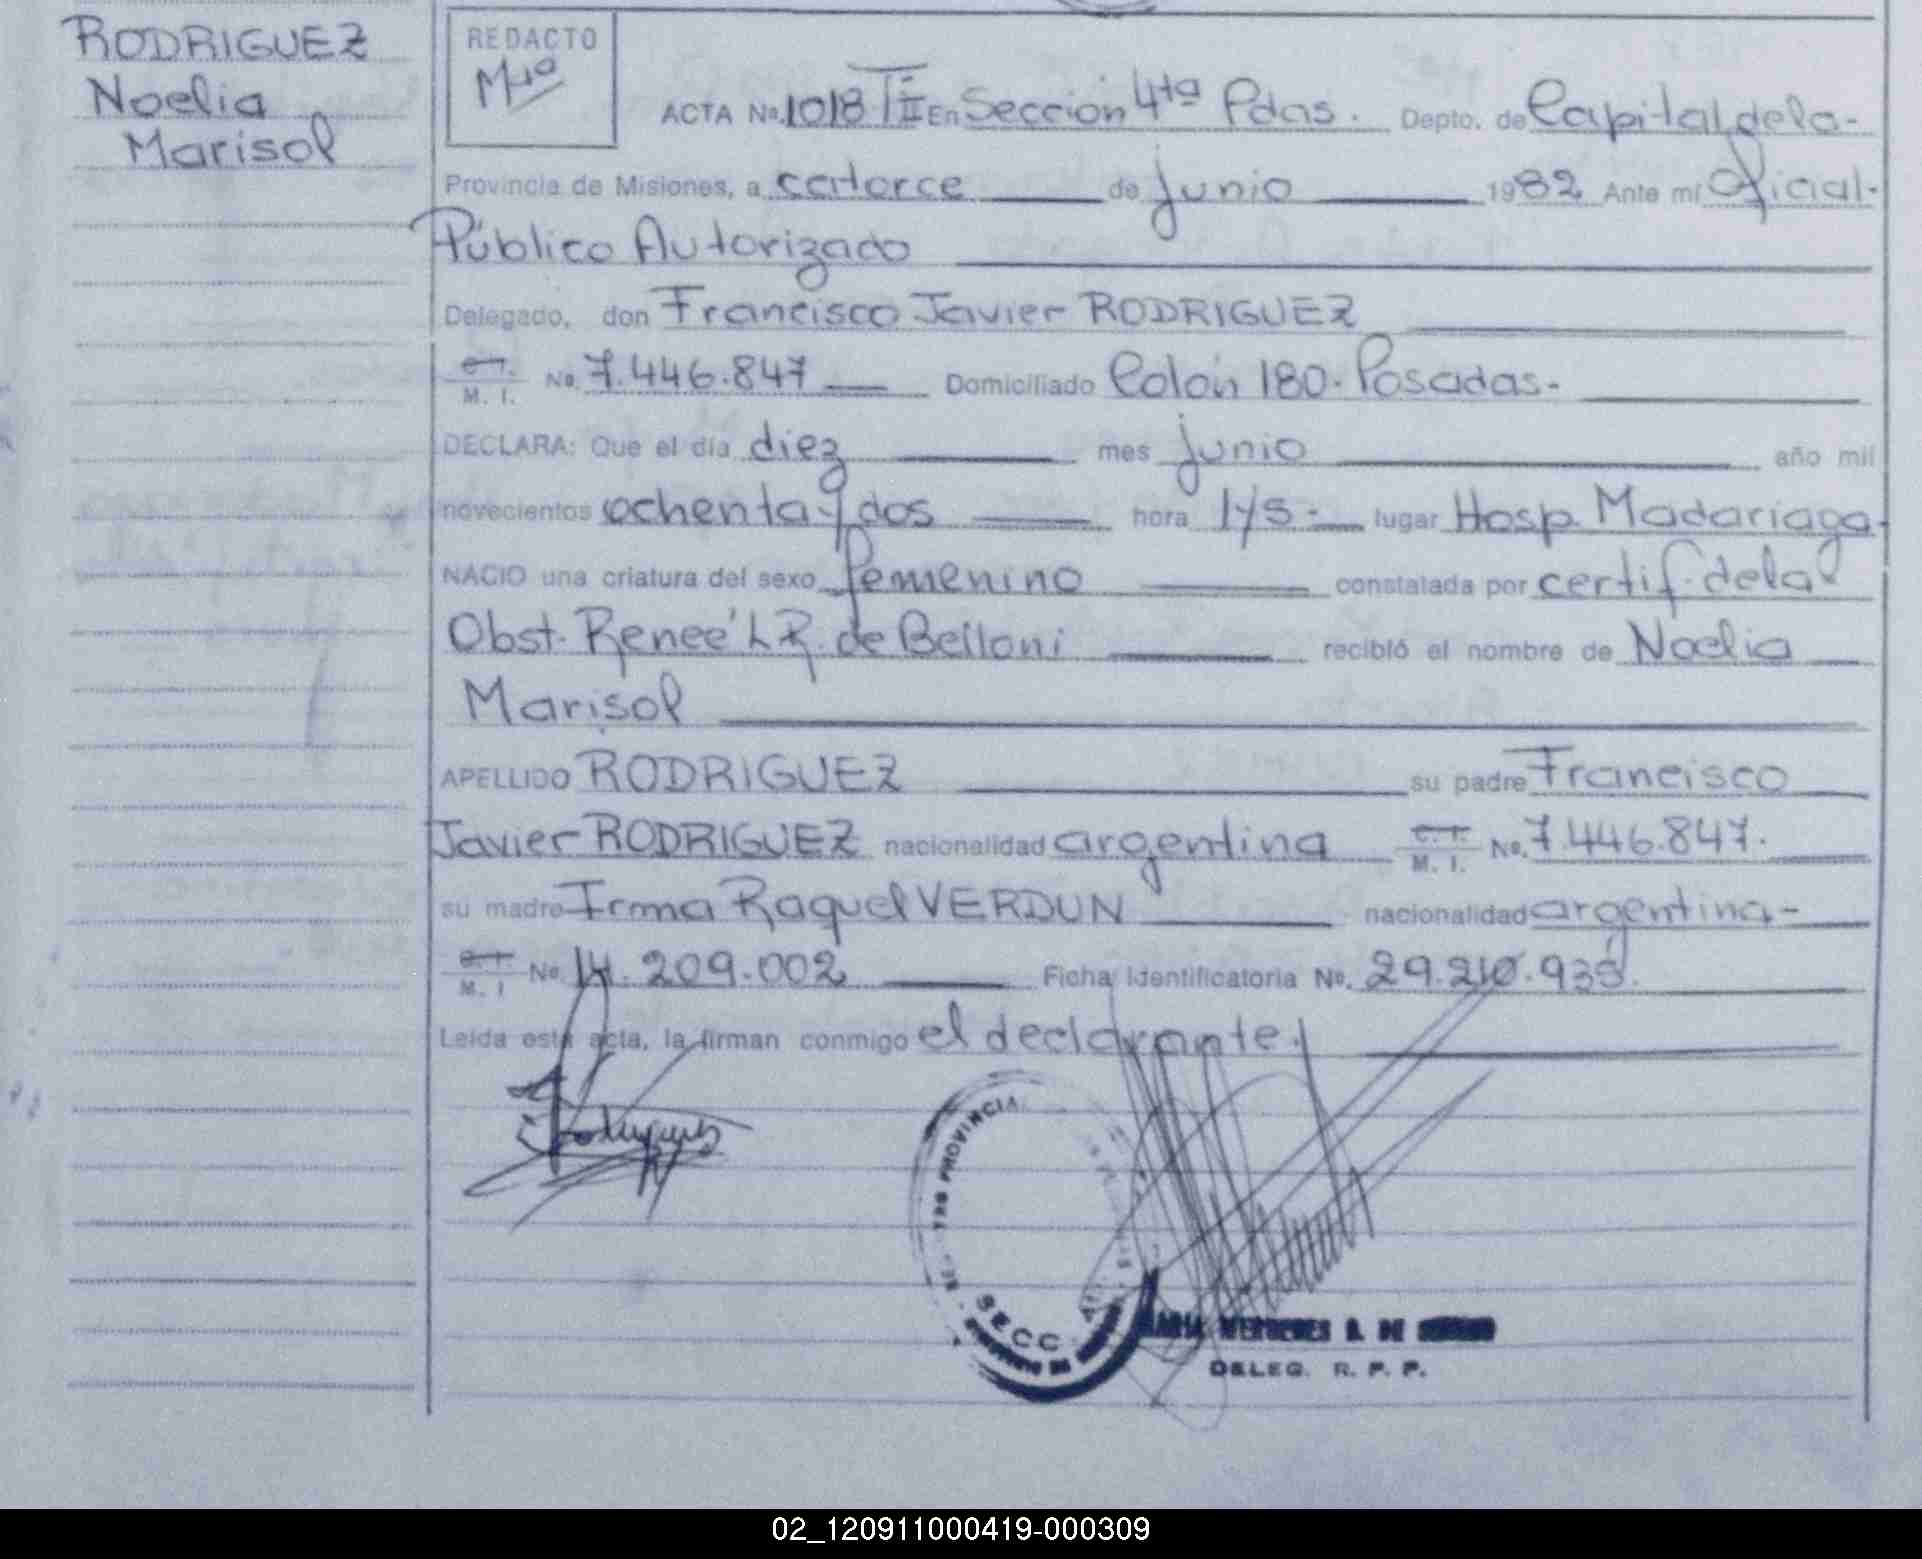 RODRIGUEZ
Noelia
Marisol
REDACTO
ACTA No. 1018 TII En Sección 4ta Pdas. Depto. de Capital de la-
Provincia de Misiones, a catorce de junio 1982 Ante mí Oficial.
Público Autorizado
Delegado, don Francisco Javier RODRIGUEZ
C.I. M. I. No. 7.446.847 Domiciliado Colón 180. Posadas.
DECLARA: Que el día diez mes junio año mil
novecientos ochenta y dos hora 1y5. lugar Hosp. Madariaga.
NACIO una criatura del sexo femenino constatada por certif. de la
Obst. Reneé L R. de Belloni recibió el nombre de Noelia
Marisol
APELLIDO RODRIGUEZ su padre Francisco
Javier RODRIGUEZ nacionalidad argentina C.I. M. I. No. 7.446.847.
su madre Irma Raquel VERDUN nacionalidad argentina-
C.I. M. I No. 14.209.002 Ficha Identificatoria No. 29.210.935.
Leída esta acta, la firman conmigo el declarante.
PROVINCIAL
SECC
DELEG. R. P. P.
02_120911000419-000309